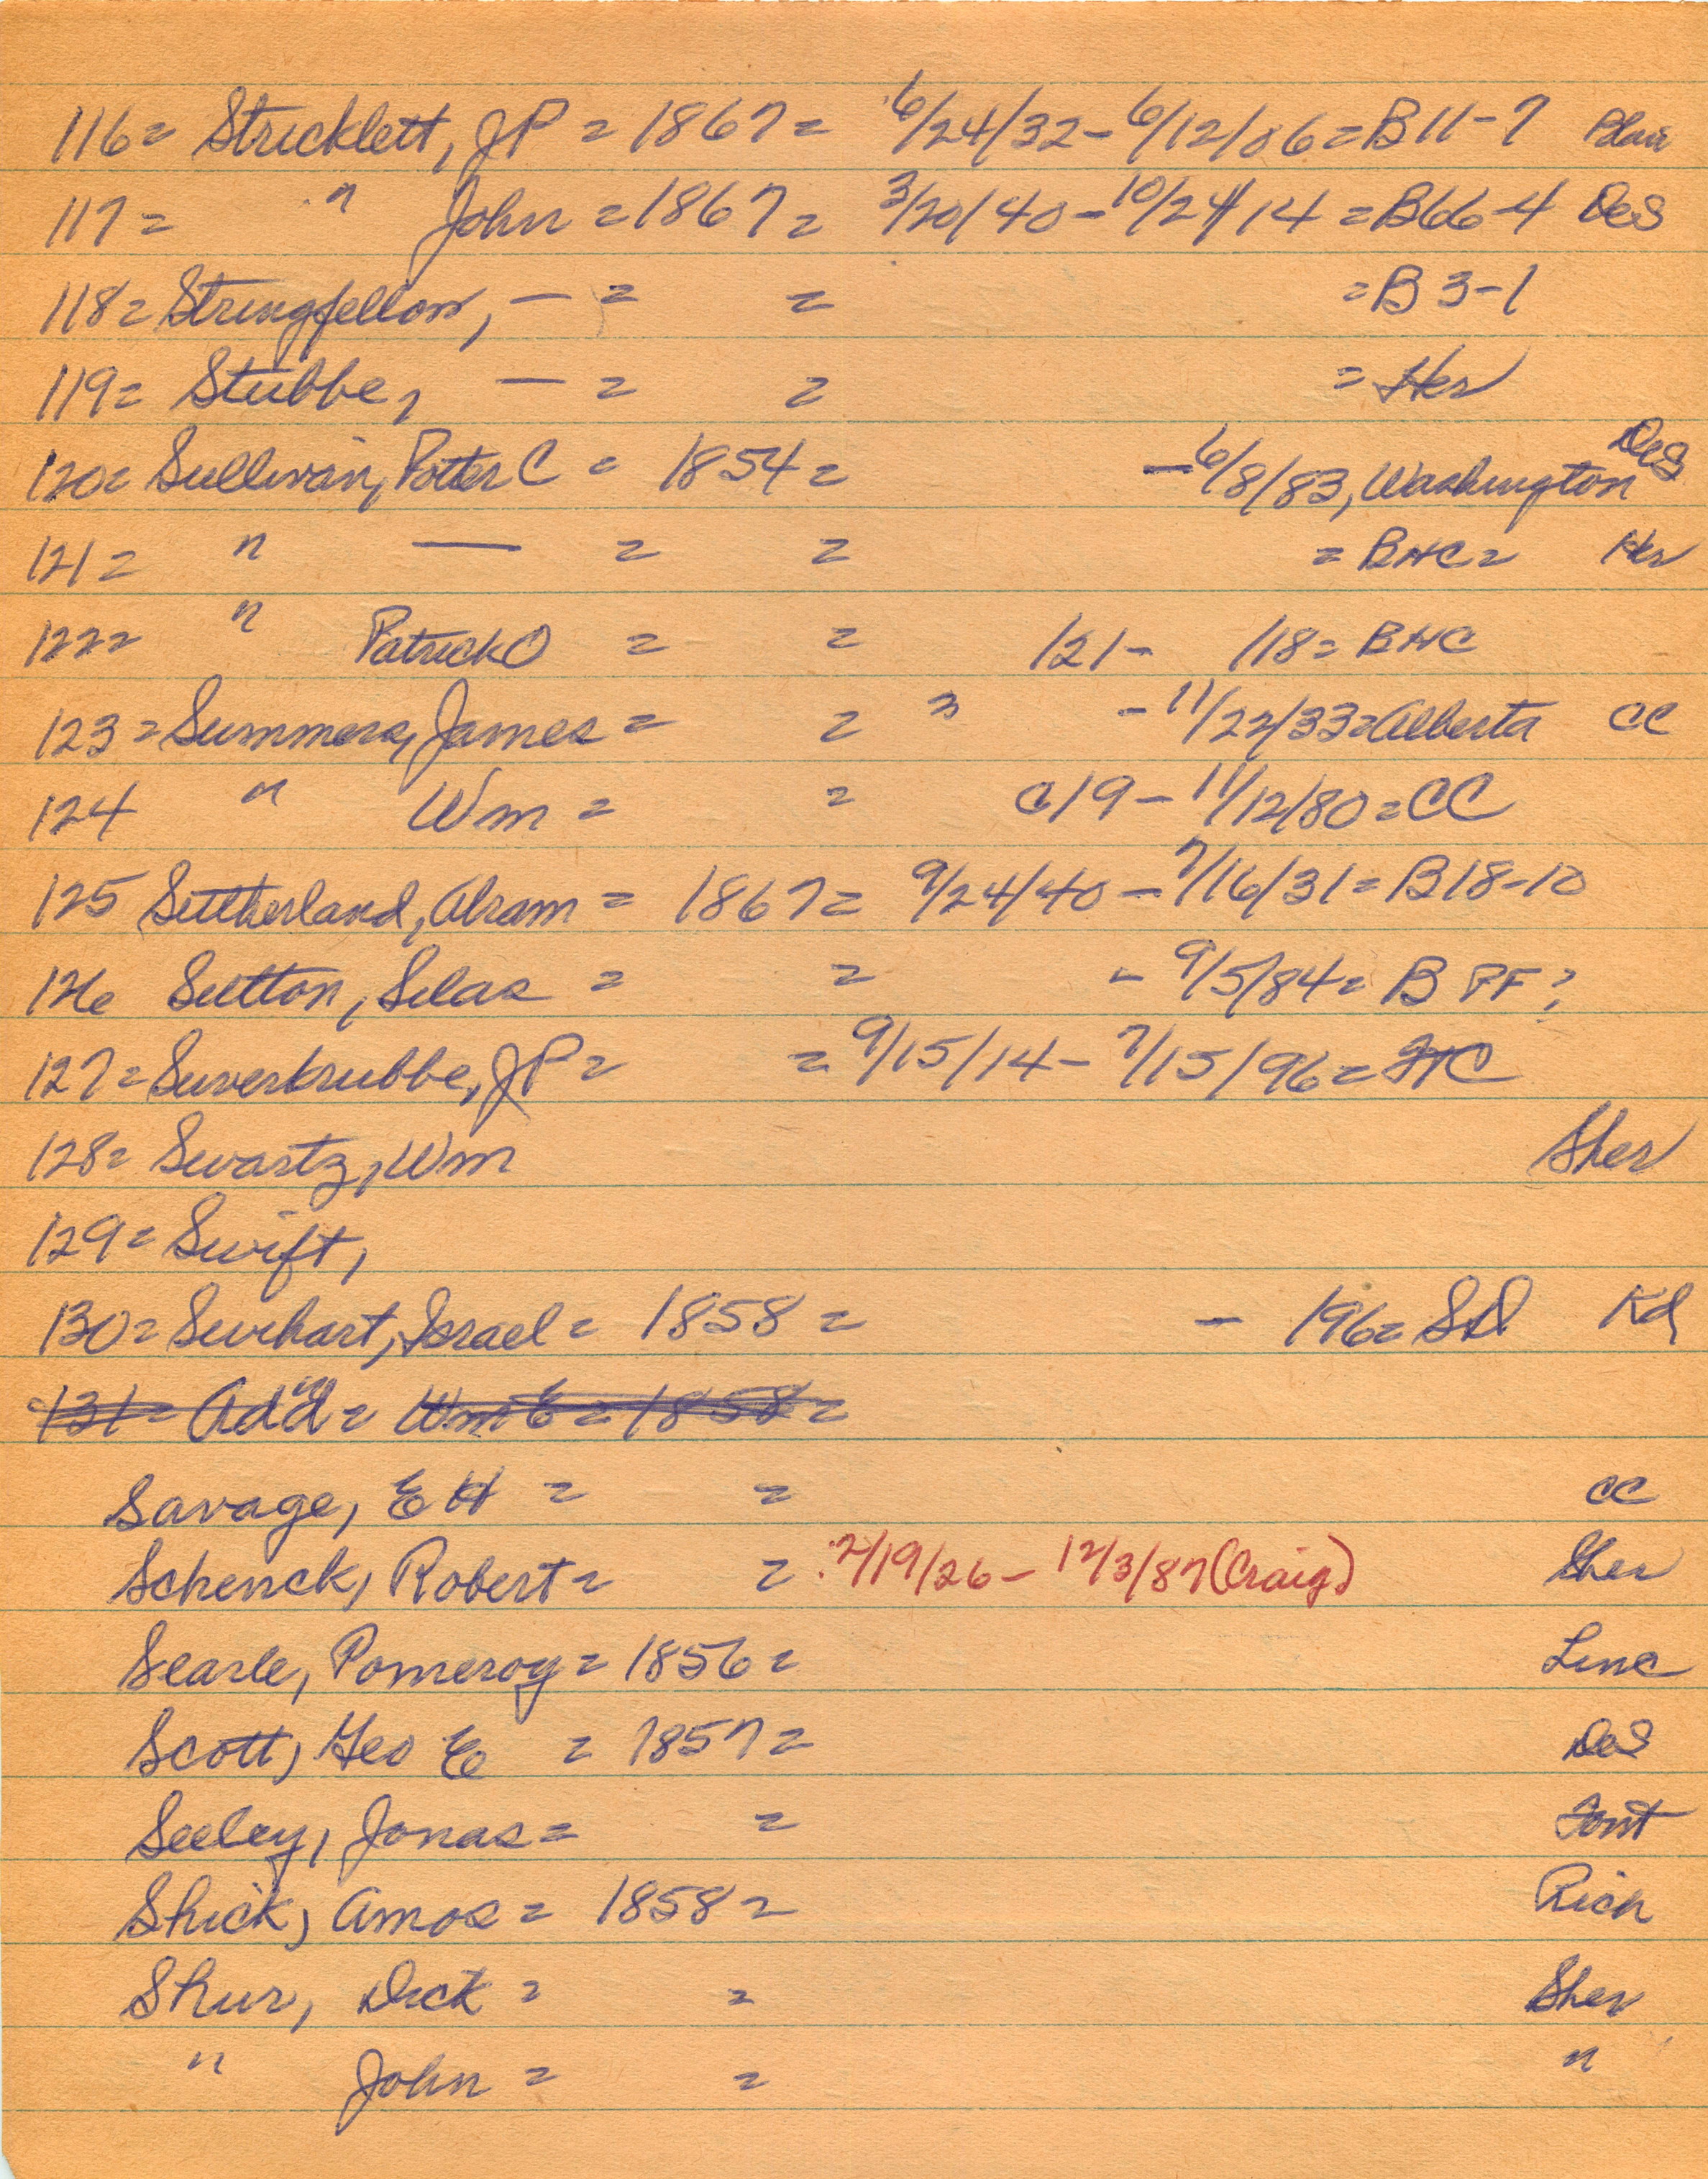 116= Stricklett, JP = 1867 = 6/24/32-6/12/06=B11-7 Blair
117= " John = 1867 = 3/20/40-10/24/14=B66-4 DeS
118= Stringfellow, — = = =B3-1
119= Stubbe, — = = = Her
120= Sullivan, Potter C = 1854 = -6/8/83, Washington DeS
121= " — = = = BHC= Her
122= " Patrick O = = /21- /18= BHC
123= Summers, James = = -11/22/33=Alberta CC
124 " Wm = = c19-11/12/80=CC
125 Sutherland, Abram = 1867= 9/24/40-7/16/31=B18-10
126 Sutton, Silas = = -9/5/84= B PF?
127= Suverkrubbe, JP= =9/15/14-7/15/96=FC
128= Swartz, Wm Sher
129= Swift,
130= Swihart, Israel = 1858 = - /96= SD Kd
131= Add'n = Wm E = 1858 =
Savage, EH = = CC
Schenck, Robert= = 2/19/26-12/3/87(Craig) Sher
Searle, Pomeroy= 1856= Linc
Scott, Geo E = 1857= DeS
Seeley, Jonas= = Font
Shick, Amos= 1858= Rich
Shur, Dick = = Sher
" John = = "